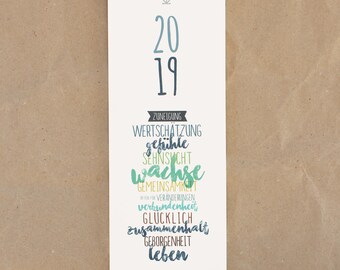 20
19
ZUNEIGUNG
WERTSCHÄTZUNG
gefühle
SEHNSUCHT
wachse
GEMEINSAMKEIT
VERÄNDERUNGEN
verbundenheit
GLÜCKLICH
zusammenhalt
GEBORGENHEIT
leben